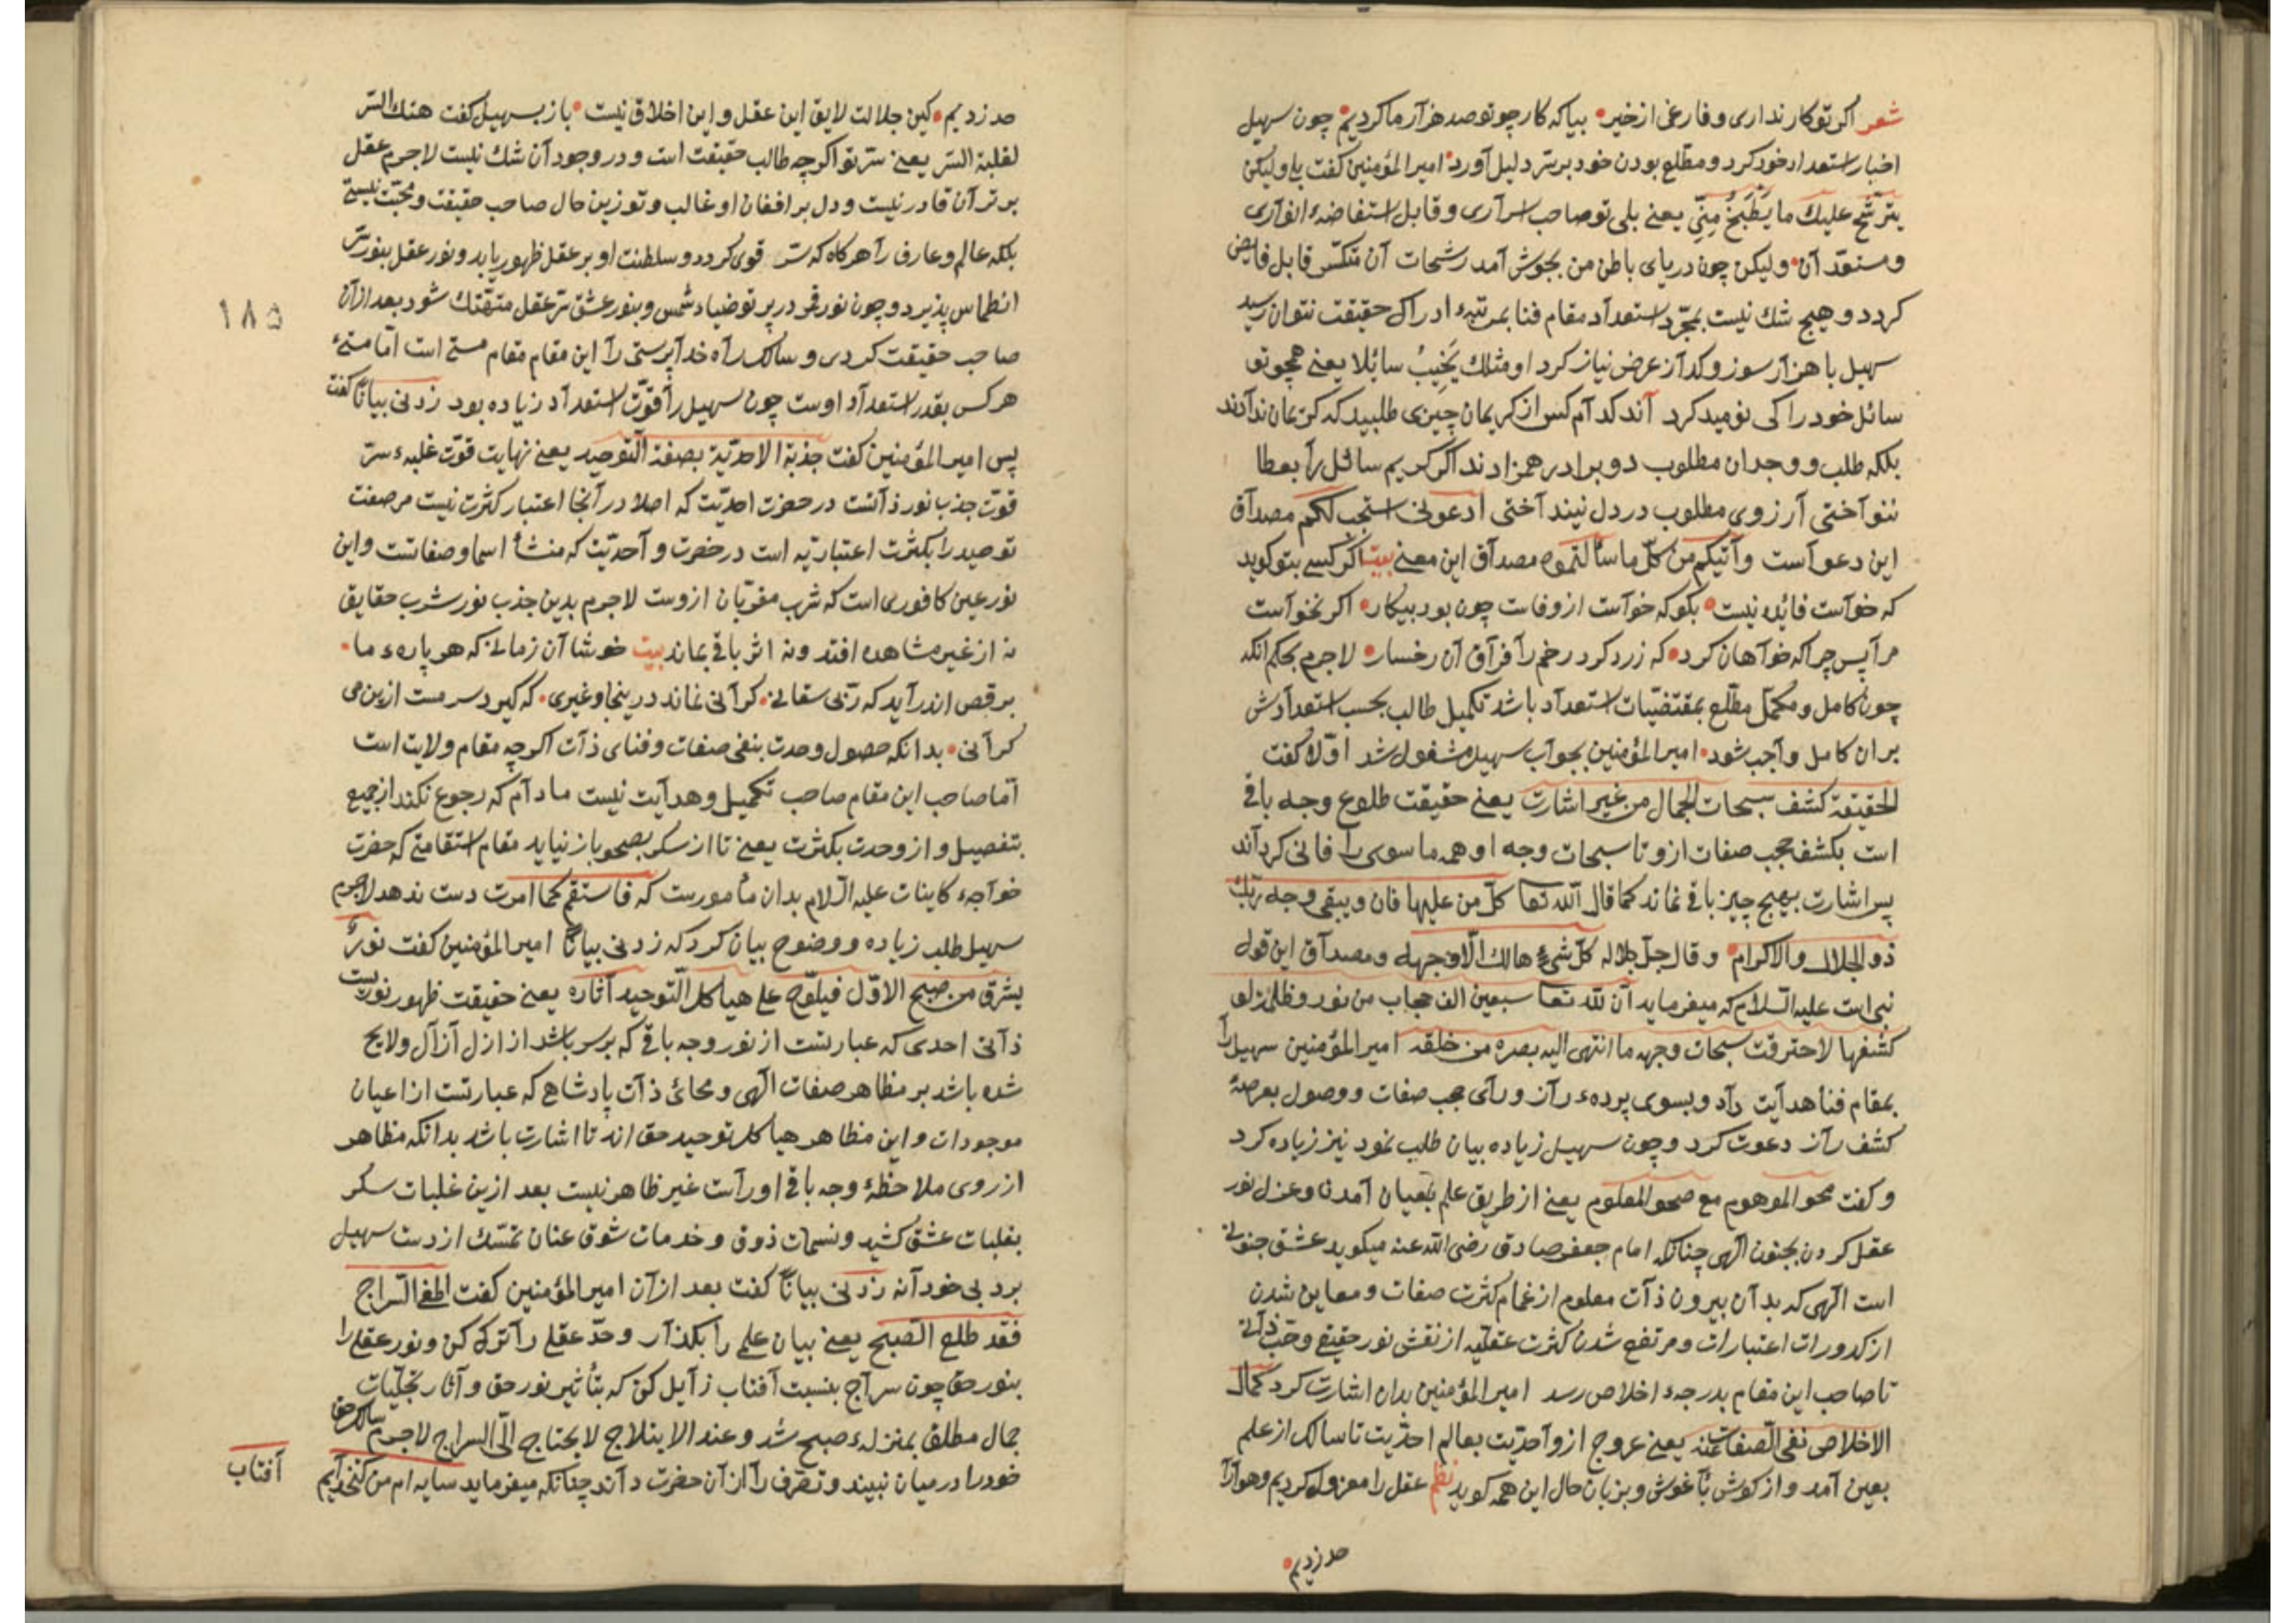 شعر اکر تو کار نداری و فارغی از خیر • بیا که کار چو تو صد هزار ما کردیم • چون سهیل
اخبار استعداد خود کرد و مطّلع بودن خود بر سرّ دلیل آورد • امیر المؤمنین کفت بلی ولیکن
یترشّح علیك ما یَطْبَخُ مِنِّی یعنی بلی تو صاحب اسراری و قابل استفاضهٔ انواری
و مستعدّ آن • ولیکن چون دریای باطن من بجوش آمد رشحات آن متکسّر قابل فایض
کردد و هیچ شك نیست بمجرّد استعداد مقام فنا بمرتبهٔ ادراك حقیقت نتوان رسید
سهیل با هزار سوز و کداز عرض نیاز کرد او مثلك یُخَیِّبُ سائلا یعنی همچو تو
سائل خود را کی نومید کرداند کدام کس از کریمان چیزی طلبید که کریمان ندادند
بلکه طلب و وجدان مطلوب دو برادر همزادند اکر کریم سائل را بعطا
ننواختی آرزوی مطلوب در دل نینداختی ادعونی استجب لکم مصداق
این دعواست و آتیکم من کلّ ما سألتموه مصداق این معنی بیت اکر کسی بتو کوید
که خواست فائده نیست • بکو که خواست ازوخاست چون بود بیکار • اکر نخواست
مرا پس چرا که خواهان کرد • که زرد کرد رخم را فراق آن رخسار • لاجرم بحکم انکه
چون کامل و مکمّل مطّلع بمقتضیات استعداد باشد تکمیل طالب بحسب استعدادش
بران کامل واجب شود • امیر المؤمنین بجواب سهیل مشغول شد اوّلا کفت
الحقیقة کشف سبحات الجمال من غیر اشارت یعنی حقیقت طلوع وجه باقی
است بکشف حجب صفات ازو تا سبحات وجه او همه ما سوی را فانی کرداند
پس اشارت بهیچ چیز باقی نماند کما قال الله تعا کلّ من علیها فان و یبقی وجه ربّك
ذو الجلال والاکرام • و قال جلّ جلاله کلّ شیء هالك الّا وجهه و مصداق این قول
نبی است علیه السلام که میفرماید انّ لله تعا سبعین الف حجاب من نور و ظلمة لو
کشفها لاحترقت سبحات وجهه ما انتهی الیه بصره من خلقه امیر المؤمنین سهیل را
بمقام فنا هدایت داد و بسوی پردهٔ راز ورای حجب صفات و وصول بعرصهٔ
کشف راز دعوت کرد و چون سهیل زیاده بیان طلب نمود نیز زیاده کرد
و کفت محو الموهوم مع صحو المعلوم یعنی از طریق علم بعیان آمدن و عزل نور
عقل کردن بجنون الهی چنانکه امام جعفر صادق رضی الله عنه میکوید عشق جنونی
است الهی که بدان بیرون ذات معلوم از غمام کثرت صفات و معاین شدن
از کدورات اعتبارات و مرتفع شدن کثرت عقلیه از نقش نور حقیقی و حبّ ذاتی
تا صاحب این مقام بدرجهٔ اخلاص رسد امیر المؤمنین بدان اشارت کرد کمال
الاخلاص نفی الصفات عنه یعنی عروج از واحدیّت بعالم احدیّت تا سالك از علم
بعین آمد و از کوش بآغوش و بزبان حال این همه کوید نظم عقل را معزول کردیم و هوا را
حد زدیم •
حد زدیم • کین جلالت لایق این عقل و این اخلاق نیست • باز بسهیل کفت هتك الستر
لغلبة السّر یعنی سرّ تو اکرچه طالب حقیقت است و در وجود آن شك نیست لاجرم عقل
بر ترآن قادر نیست و دل بر افغان او غالب و تو زین حال صاحب حقیقت و محبّت نیستی
بلکه عالم و عارف را هرکاه که سرّ قوی کردد و سلطنت او بر عقل ظهور یابد و نور عقل بنور سرّ
انطماس پذیرد و چون نور قمر در پرتو ضیاء شمس و بنور عشق ستر عقل متهتّك شود بعد ازان
صاحب حقیقت کردی و سالك راه خداپرستی را این مقام مقام مستی است امّا مستیٔ
هر کس بقدر استعداد اوست چون سهیل را قوّت استعداد زیاده بود زدنی بیانًا کفت
پس امیر المؤمنین کفت جذبة الاحدیّة بصفة التّوحید یعنی نهایت قوّت غلبهٔ سرّ
قوّت جذب نور ذاتست در حضرت احدیّت که اصلا در آنجا اعتبار کثرت نیست مر صفت
توحید را بکثرت اعتباریه است در حضرت واحدیّت که منشأ اسما و صفاتست و این
نور عین کافوری است که شرب مقرّبان ازوست لاجرم بدین جذب نور شرب حقایق
نه از غیر مشاهده افتد و نه اثر باقی بماند بیت خوشا آن زمانی که هر پارهٔ ما •
برقص اندر آید که ربّی سقانی • کرانی نماند درینجا و غیری • که کیرد سر مست ازین می
کرانی • بدانکه حصول وحدت بنفی صفات و فنای ذات اکرچه مقام ولایت است
امّا صاحب این مقام صاحب تکمیل و هدایت نیست مادام که رجوع نکند از جمع
بتفصیل و از وحدت بکثرت یعنی تا از سکر بصحو باز نیاید مقام استقامتی که حضرت
خواجهٔ کاینات علیه السلام بدان مأمورست که فاستقم کما امرت دست ندهد لاجرم
سهیل طلب زیاده و وضوح بیان کرد که زدنی بیانًا امیر المؤمنین کفت نورٌ
یشرق من صبح الاوّل فیلوح علی هیاکل التّوحید آثاره یعنی حقیقت ظهور نوریست
ذاتی احدی که عبارتست از نور وجه باقی که برسر باشد از ازل آزال و لایح
شده باشد بر مظاهر صفات الهی و محائ ذات پادشاهی که عبارتست از اعیان
موجودات و این مظاهر هیاکل توحید حق اند تا اشارت باشد بدانکه مظاهر
از روی ملاحظهٔ وجه باقی اوراست غیر ظاهر نیست بعد ازین غلبات سکر
بغلبات عشق کشید و نسمات ذوق و خدمات شوق عنان تمسّك از دست سهیل
برد بی خودانه زدنی بیانًا کفت بعد ازان امیر المؤمنین کفت اطف السّراج
فقد طلع الصّبح یعنی بیان علمی را بکذار و حدّ عقلی را ترك کن و نور عقلی را
بنور حق چون سراج بنسبت آفتاب زایل کن که بتأثیر نور حق و آثار تجلّیات
جمال مطلق بمنزلهٔ صبح شد و عند الابتلاج لا یحتاج الی السراج لاجرم سالك حق
خود را درمیان نبیند و تصرّف را ازان حضرت داند چنانکه میفرماید سایه ام من کدخدایم
آفتاب
۱۸۵